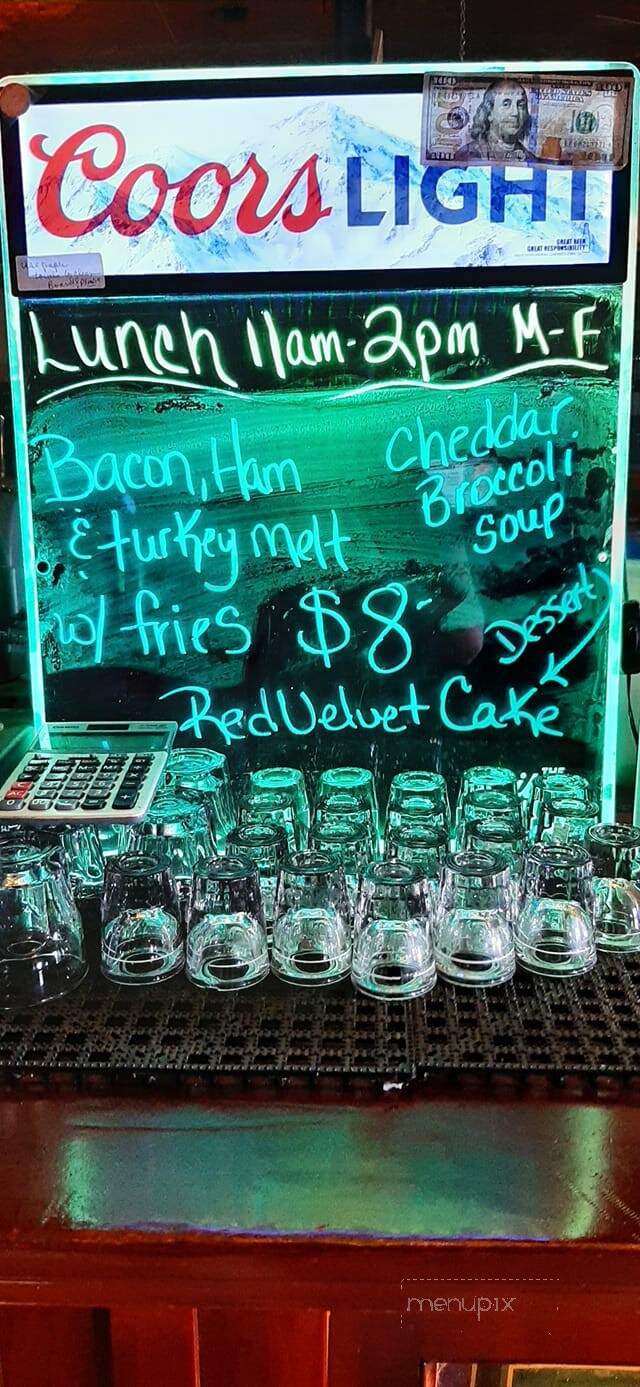 Coors LIGHT
GREAT BEER
GREAT RESPONSIBILITY
Lunch 11am-2pm M-F
Bacon, Ham
& turkey melt
w/ fries $8-
Cheddar
Broccoli
Soup
Dessert
Red Velvet Cake
THE
menupix